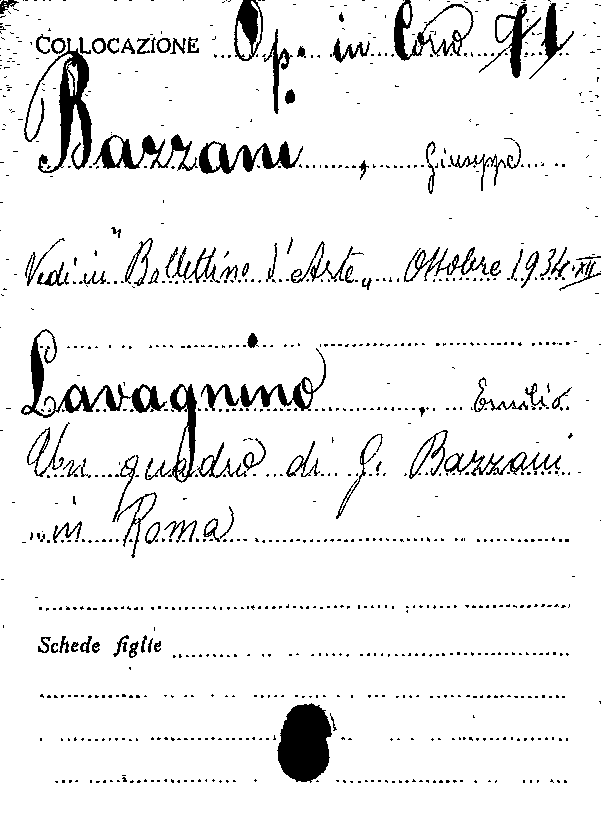 COLLOCAZIONE Op. in Corso 71
Bazzani, Giuseppe
Vedi in "Bollettino d'Arte„ Ottobre 1934-XII
Lavagnino, Emilio
Un quadro di G. Bazzani
in Roma
Schede figlie